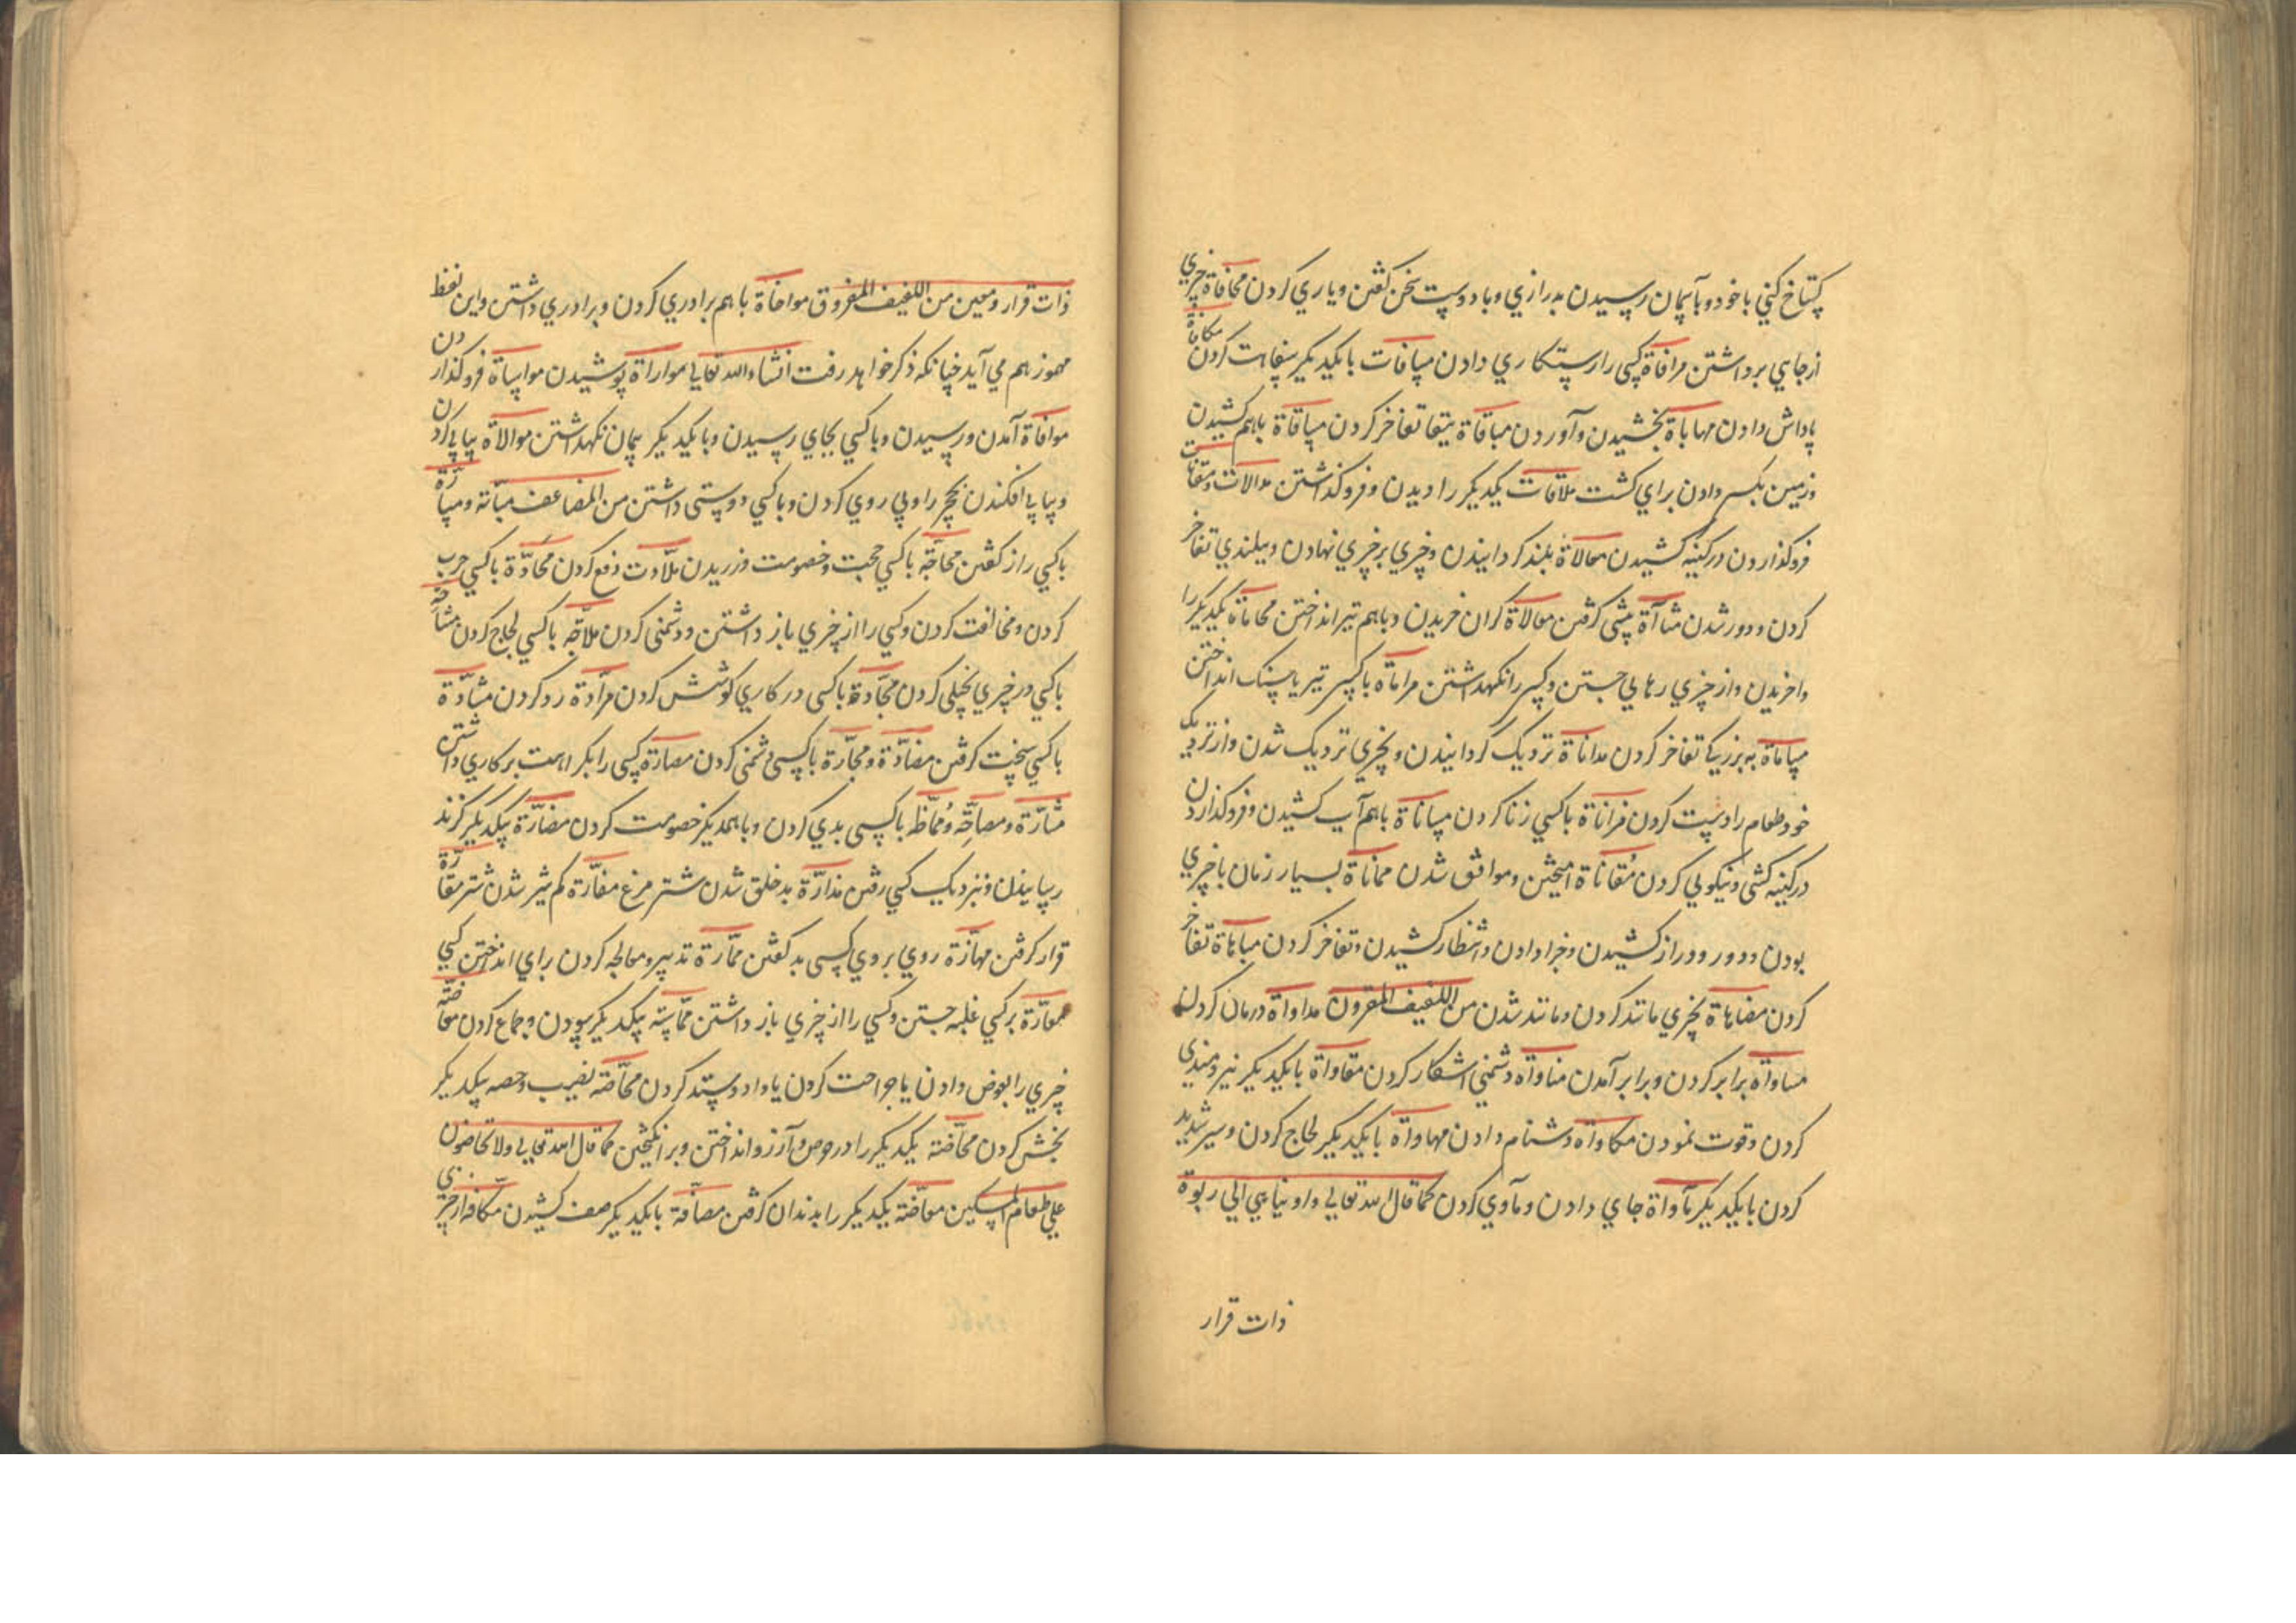 كستاخ كني با خود و بآسمان رسيدن بدرازي و با دوست سخن كفتن و ياري كردن مجافاة چيزي
از جايي برداشتن مرافاة كسي را رستكاري دادن مسافات با يكديكر سفاهت كردن مكافاة
پاداش دادن مهاباة بخشيدن و آوردن مباقاة ببقا تفاخر كردن مساقاة باهم كشيدن
و زمين بكسي دادن براي كشت ملاقات يكديكر را ديدن و فروكذاشتن مبالات و مقالت
فروكذاردن در كينه كشيدن معالاة بلند كردانيدن و چيزي بر چيزي نهادن و ببلندي تفاخر
كردن و دور شدن مشاآة پيشي كرفتن مغالاة كران خريدن و باهم تير انداختن محاماة يكديكر را
واخريدن و از چيزي رهايي جستن و كسي را نكهداشتن مراماة با كسي تير يا سنك انداختن
مساماة به بزركي تفاخر كردن مداناة نزديك كردانيدن و بچيزي نزديك شدن و از نزديك
خود طعام راست كردن مزاناة با كسي زنا كردن مساناة باهم آب كشيدن و فروكذاردن
در كينه كشي و نيكويي كردن مقاناة آميختن و موافق شدن مماناة بسيار زمان با چيزي
بودن و دور و دراز كشيدن و جزا دادن و انتظار كشيدن و تفاخر كردن مباهاة تفاخر
كردن مضاهاة بچيزي مانند كردن و مانند شدن من اللفيف المقرون مداواة درمان كردن
مساواة برابر كردن و برابر آمدن مناواة دشمني آشكار كردن مقاواة با يكديكر نيرومندي
كردن و قوت نمودن مكاواة دشنام دادن مهاواة با يكديكر لجاج كردن و سير شديد
كردن با يكديكر مآواة جاي دادن و مآوي كردن كما قال الله تعالي و اوينا هي الي ربوة
ذات قرار
ذات قرار و معين من اللفيف المفروق مواخاة باهم برادري كردن و برادري داشتن و اين لفظ
مهموز هم مي آيد چنانكه ذكر خواهد رفت انشاء الله تعالي مواراة پوشيدن مواساة فروكذاردن
موافاة آمدن و رسيدن و با كسي بجاي رسيدن و با يكديكر پيمان نكهداشتن موالاة پياپي كردن
و پياپي افكندن نخچير را و پي روي كردن و با كسي دوستي داشتن من المضاعف مباثة و مسارة
با كسي راز كفتن محاجة با كسي حجت و خصومت ورزيدن ملادت دفع كردن محادة با كسي حرب
كردن و مخالفت كردن و كسي را از چيزي باز داشتن و دشمني كردن ملاجة با كسي لجاج كردن مشاحة
با كسي در چيزي بخيلي كردن مجادة با كسي در كاري كوشش كردن مرادة رد كردن مشادة
با كسي سخت كرفتن مضادة و مجارة با كسي دشمني كردن مصارة كسي را بكراهت بر كاري داشتن
مشارة و مصاخة و مماظة با كسي بدي كردن و با همديكر خصومت كردن مضارة يكديكر كزند
رسانيدن و نزديك كسي رفتن مذارة بد خلق شدن شتر مرغ مغارة كم شير شدن شتر مقارة
قرار كرفتن مهازة روي بروي كسي بد كفتن ممارة تدبير و معالجه كردن براي انداختن كسي
معازة بر كسي غلبه جستن و كسي را از چيزي باز داشتن مماسة يكديكر سودن و جماع كردن معاضة
چيزي را بعوض دادن يا جراحت كردن يا داد و ستد كردن محاصة نصيب و حصه يكديكر
بخش كردن محاضة يكديكر را در حرص و آرزو انداختن و بر انكيختن كما قال الله تعالي ولا تحاضون
علي طعام المسكين معاضة يكديكر را بدندان كرفتن مصافة با يكديكر صف كشيدن مكافة از چيزي